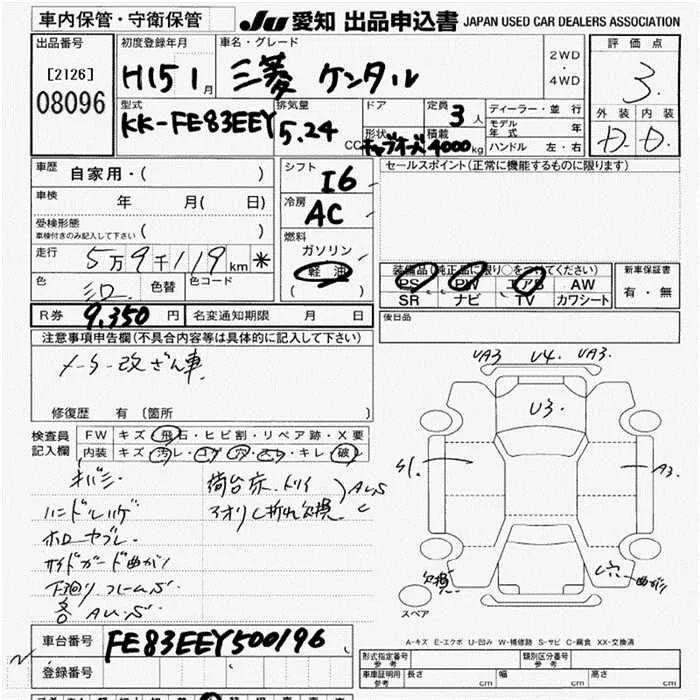 車内保管・守衛保管
JU 愛知 出品申込書 JAPAN USED CAR DEALERS ASSOCIATION
出品番号
[2126]
08096
初度登録年月
H15 1 月
車名・グレード
三菱 ケンタル
2WD
・
4WD
評価点
3.
外装 内装
D. D.
型式
KK-FE83EEY
排気量
5.24
CC
ドア
形状
定員
3 人
積載
4000 kg
ディーラー・並 行
モデル年式 年
ハンドル 左・右
車歴
自家用・( )
車検 年 月( 日)
受検形態
車検付きのみ記入して下さい ( )
走行
5万9千119 km *
色
色替
色コード
シフト
I6
冷房
AC
燃料
ガソリン
軽 油
( )
セールスポイント(正常に機能するものに限ります)
装備品(純正品に限り○をつけてください)
PS PW エアB AW
SR ナビ TV カワシート
新車保証書
有・無
R券 9,350 円 名変通知期限 月 日
後日品
注意事項申告欄(不具合内容等は具体的に記入して下さい)
修復歴 有 〔箇所 〕
検査員
記入欄
FW キズ・飛石・ヒビ割・リペア跡・X要
内装 キズ・汚レ・コゲ・穴・スレ・キレ・破レ
キバミ
ハンドルハゲ
ホロヤブレ
サイドガード曲がり
下廻り フレームS
各 AUS
荷台床
アオリ
欠損
AUS
UA3 U4. UA3.
U3.
S1.
A3.
欠損
穴
曲がり
スペア
A-キズ E-エクボ U-凹み W-補修跡 S-サビ C-腐食 XX-交換済
車台番号 FE83EEY500196
登録番号
形式指定番号
参考
類別区分番号
参考
車庫証明用
参考
長さ cm 幅 cm 高さ cm